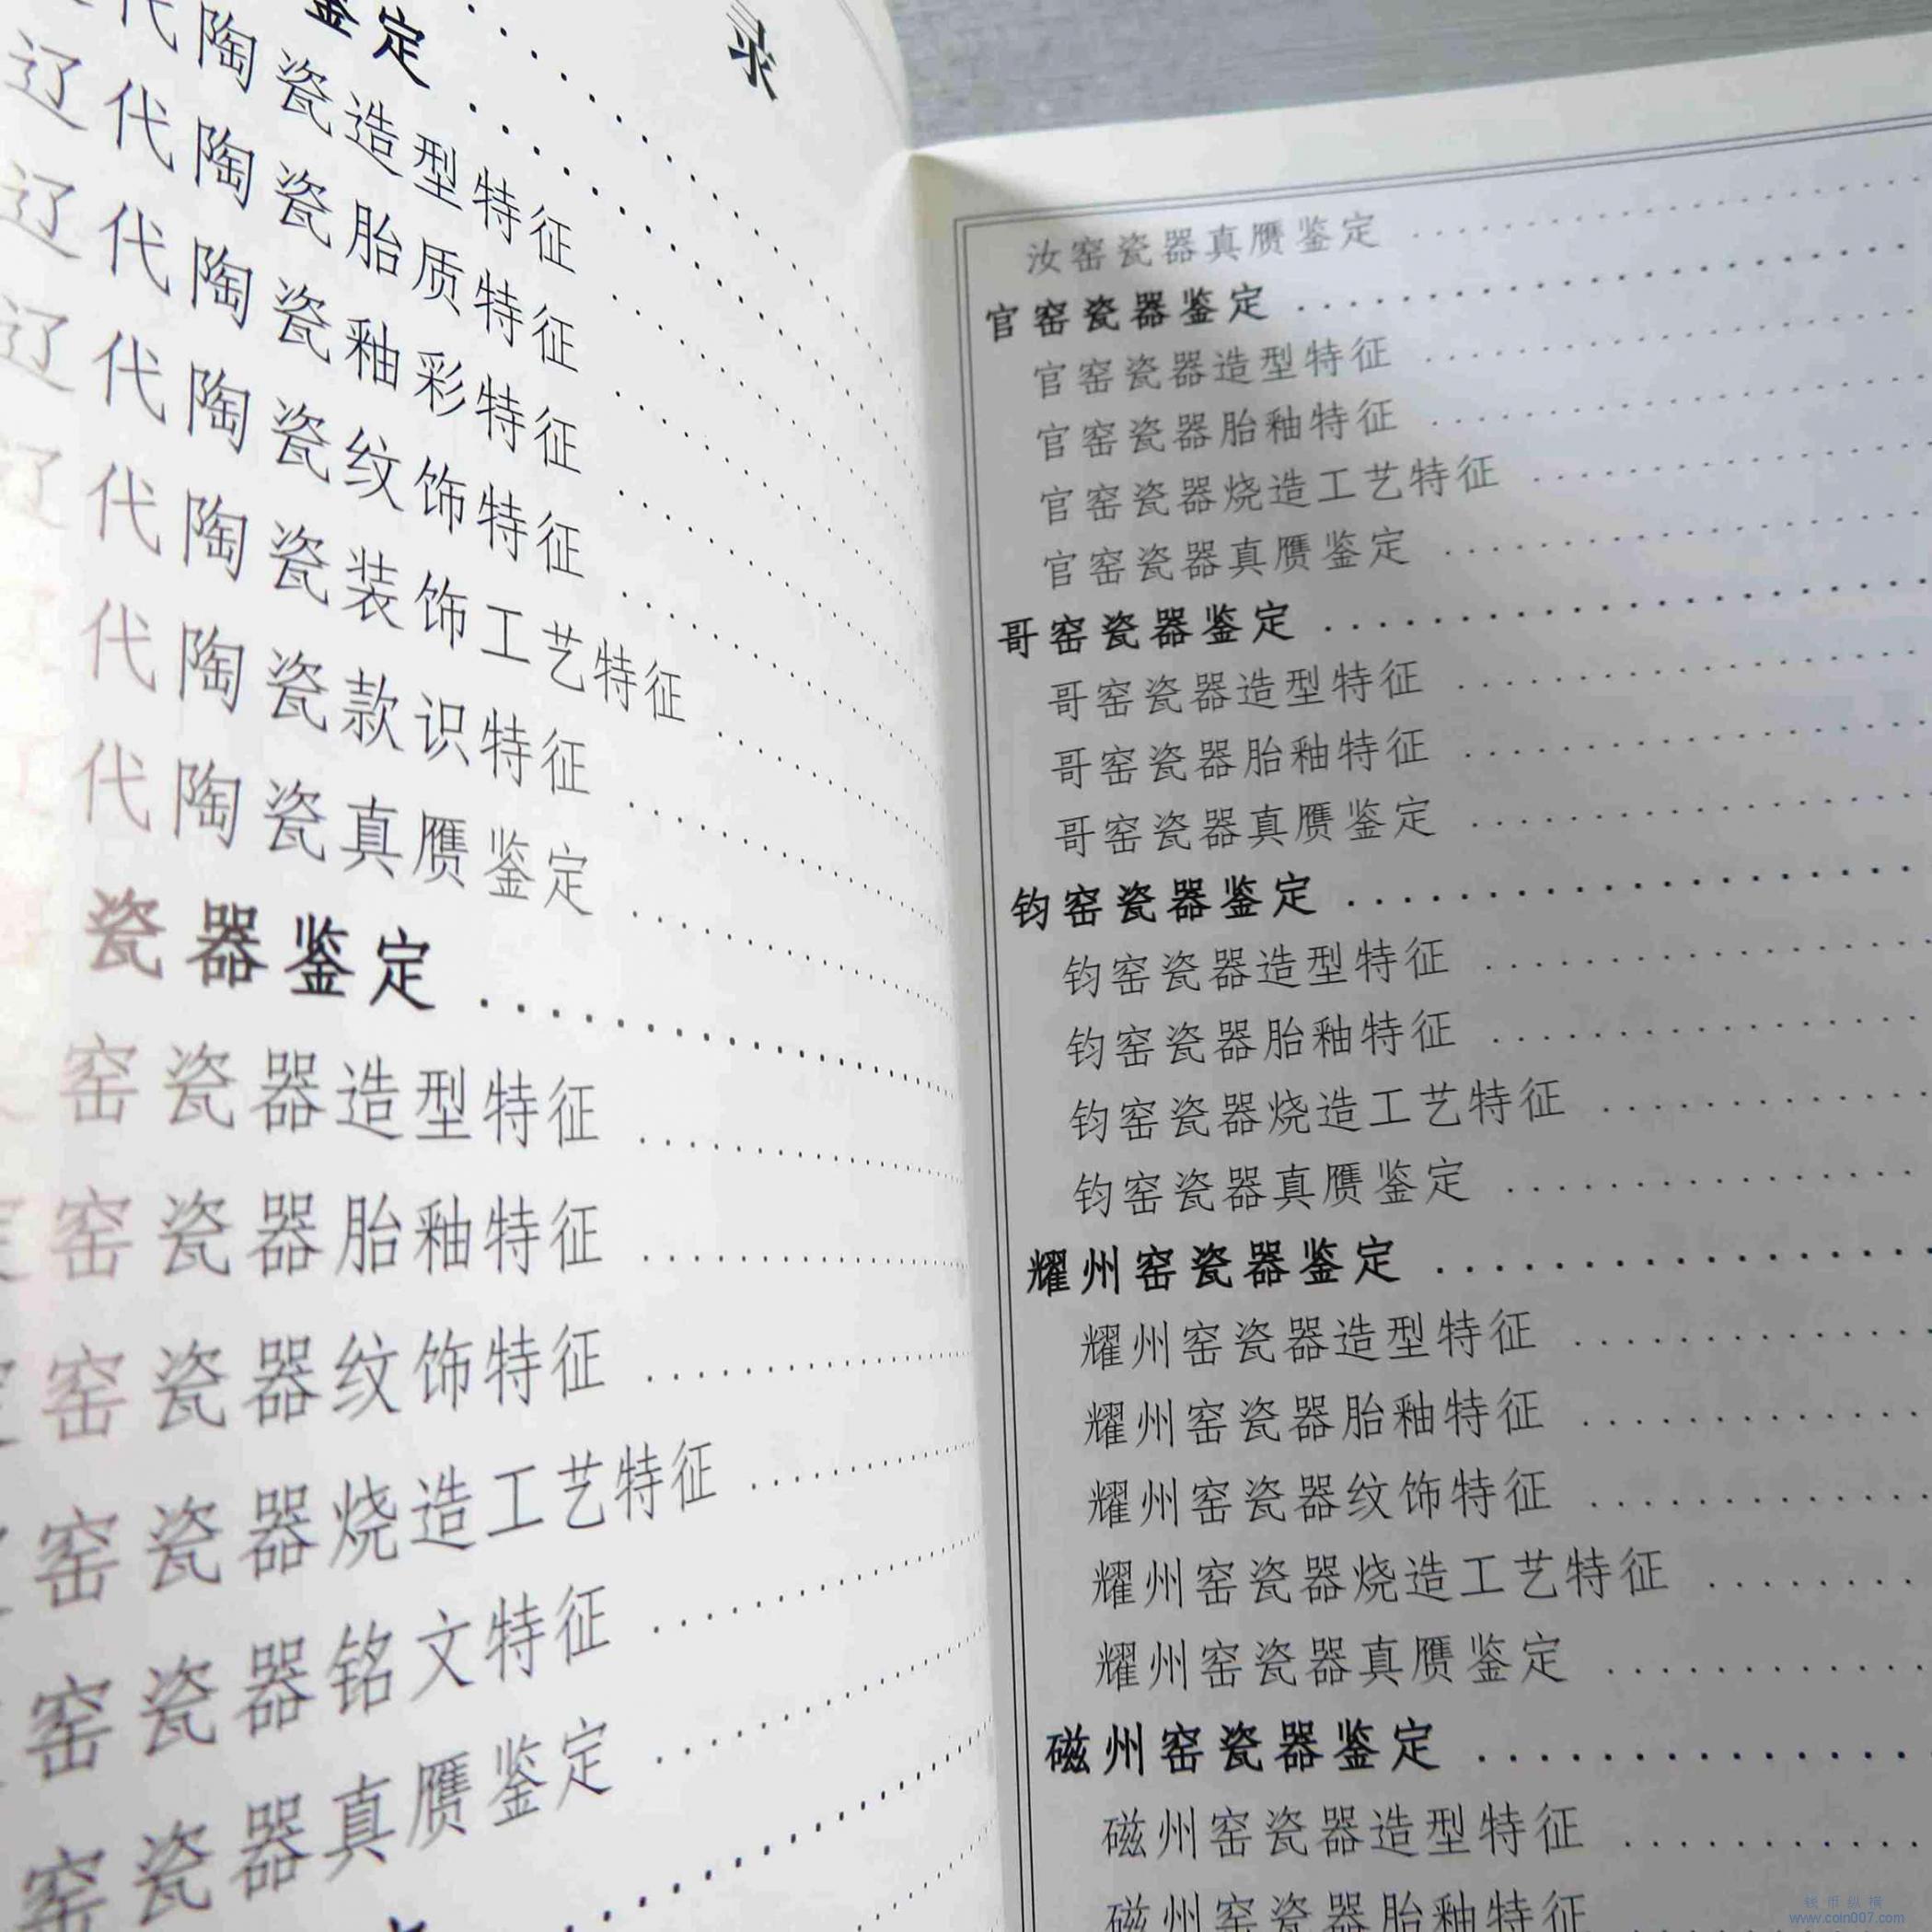 录
鉴定
代陶瓷造型特征
辽代陶瓷胎质特征
辽代陶瓷釉彩特征
辽代陶瓷纹饰特征
辽代陶瓷装饰工艺特征
代陶瓷款识特征
代陶瓷真赝鉴定
瓷器鉴定
窑瓷器造型特征
窑瓷器胎釉特征
窑瓷器纹饰特征
窑瓷器烧造工艺特征
窑瓷器铭文特征
窑瓷器真赝鉴定
汝窑瓷器真赝鉴定
官窑瓷器鉴定
官窑瓷器造型特征
官窑瓷器胎釉特征
官窑瓷器烧造工艺特征
官窑瓷器真赝鉴定
哥窑瓷器鉴定
哥窑瓷器造型特征
哥窑瓷器胎釉特征
哥窑瓷器真赝鉴定
钧窑瓷器鉴定
钧窑瓷器造型特征
钧窑瓷器胎釉特征
钧窑瓷器烧造工艺特征
钧窑瓷器真赝鉴定
耀州窑瓷器鉴定
耀州窑瓷器造型特征
耀州窑瓷器胎釉特征
耀州窑瓷器纹饰特征
耀州窑瓷器烧造工艺特征
耀州窑瓷器真赝鉴定
磁州窑瓷器鉴定
磁州窑瓷器造型特征
磁州窑瓷器胎釉特征
钱币纵横
www.coin007.com